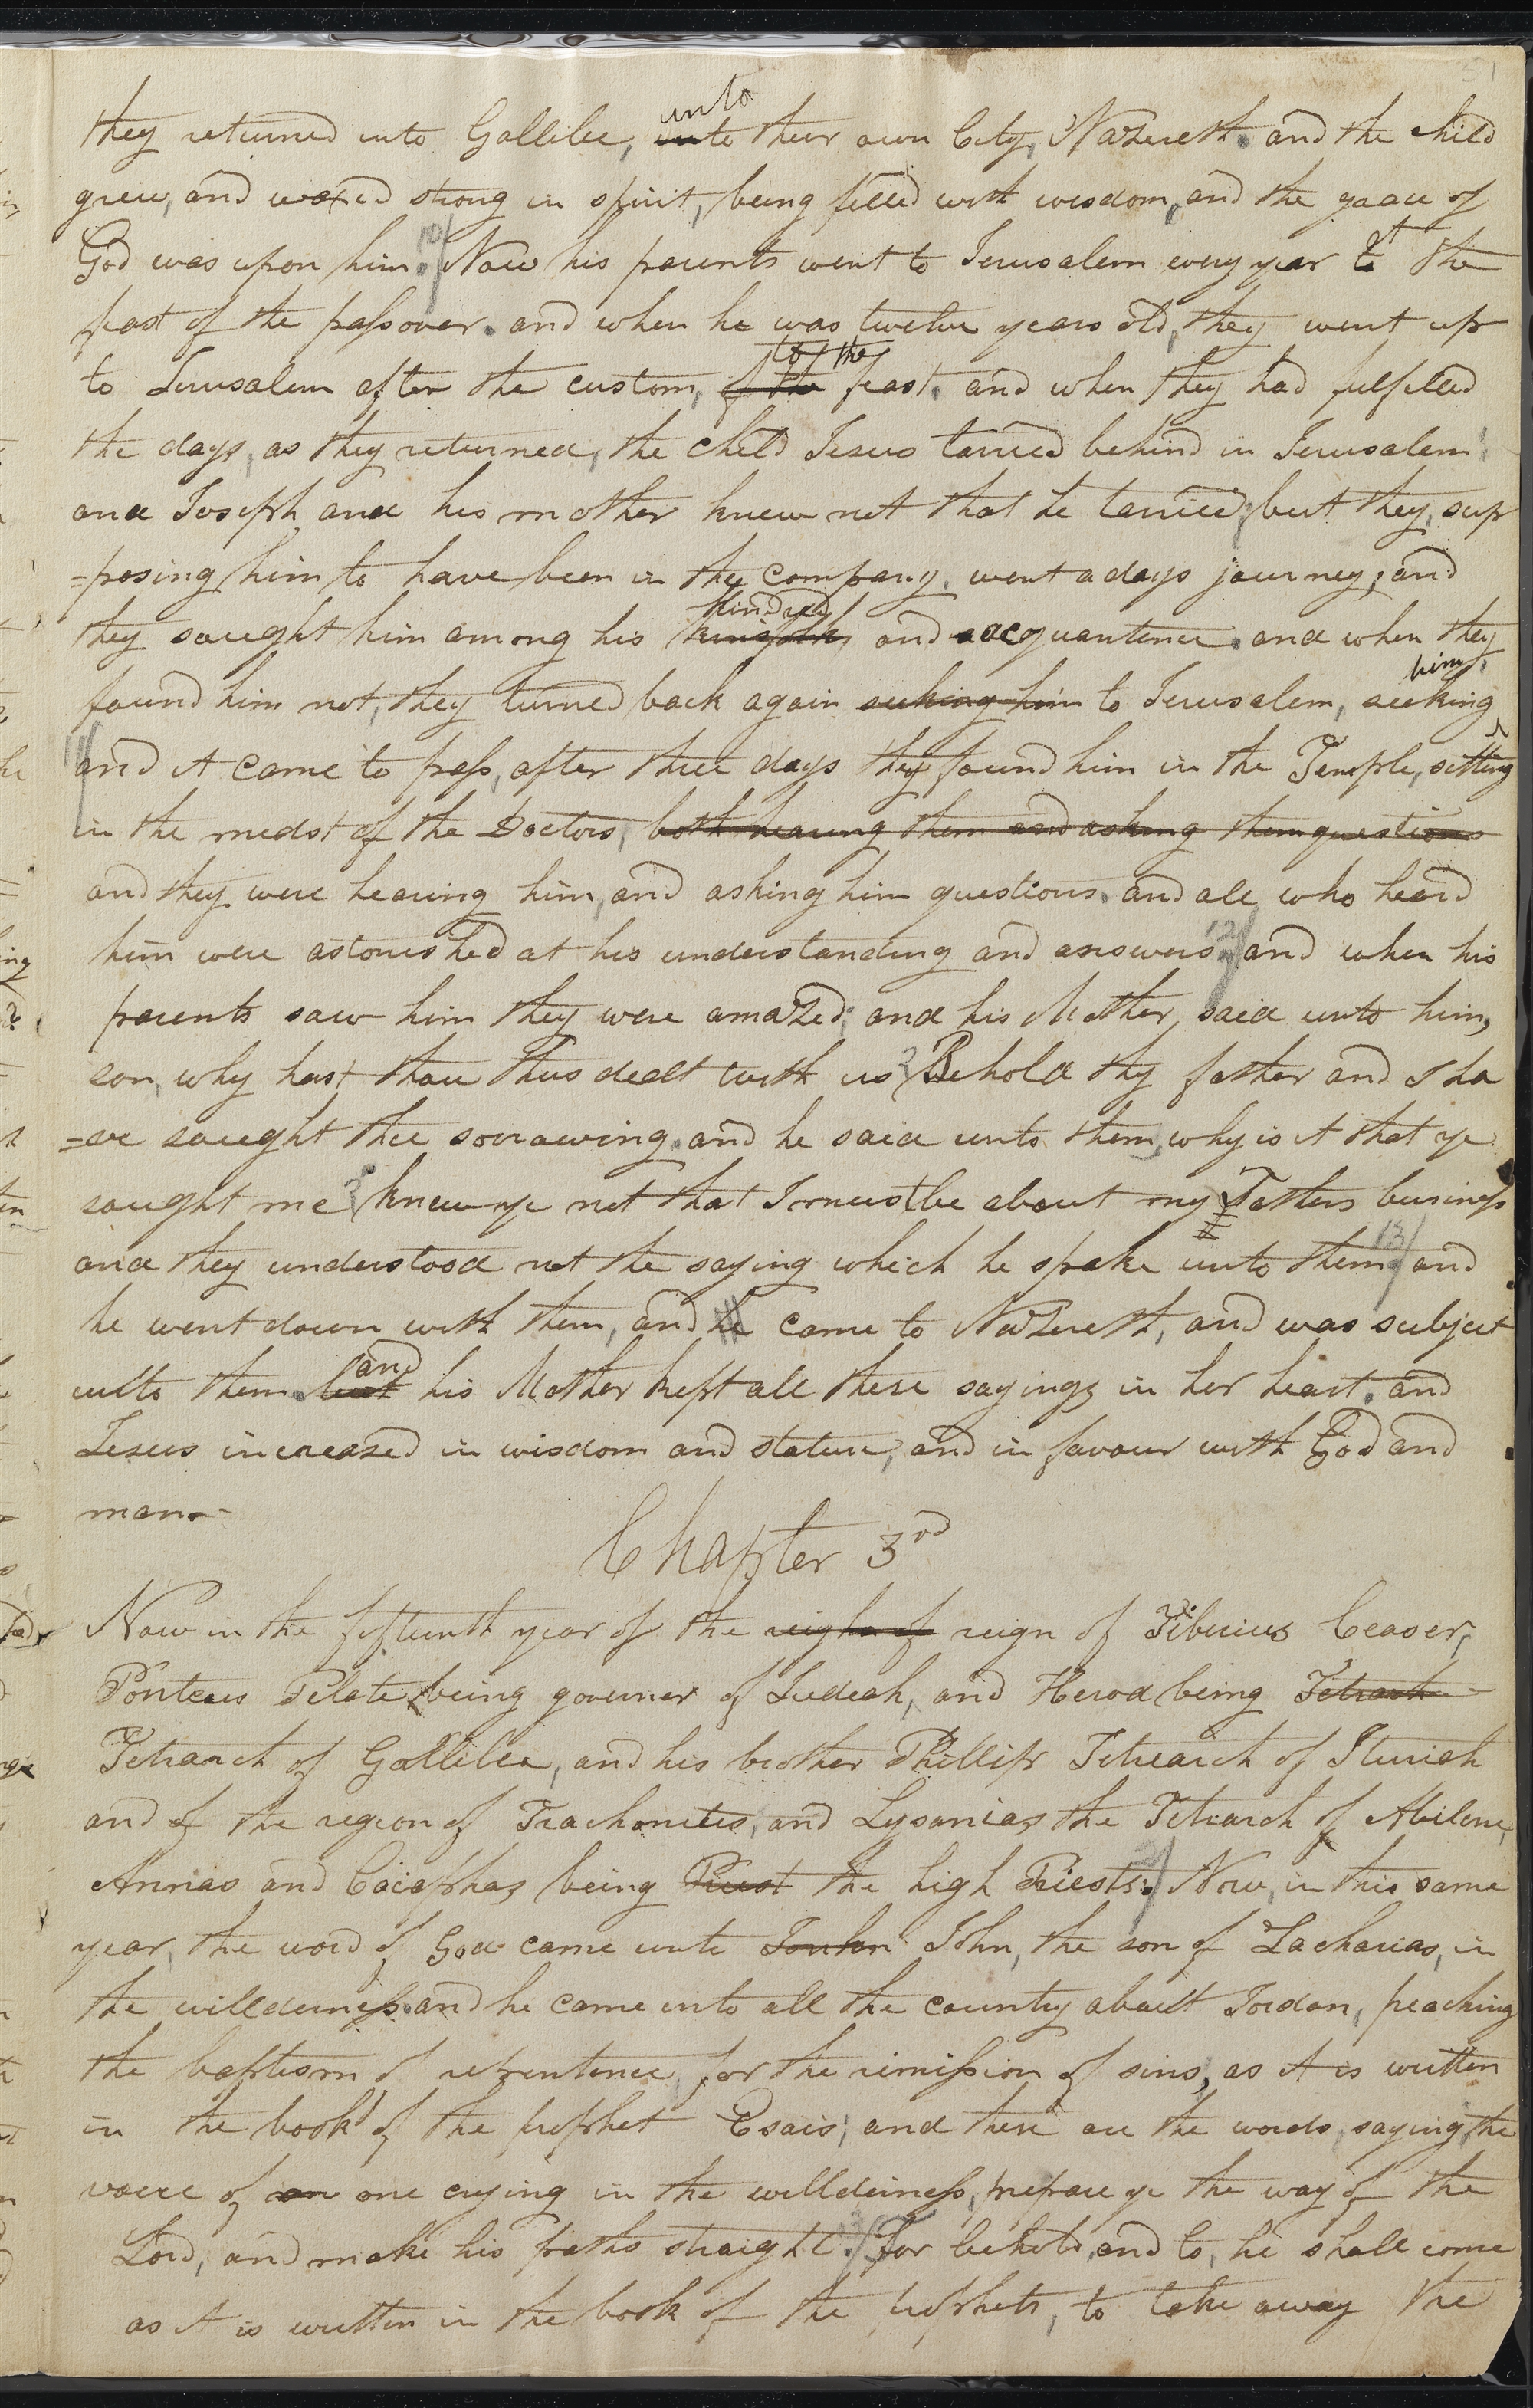 51
they returned into Gallilee, unto their own City, Nazereth. and the child
grew, and waxed strong in spirit, being filled with wisdom, and the grace of
God was upon him. 10/ Now his parents went to Jerusalem every year at the
feast of the passover. and when he was twelve years old, they went up
to Jerusalem after the custom, of the to the feast. and when they had fulfilled
the days, as they returned, the child Jesus tarried behind in Jerusalem;
and Joseph and his mother knew not that he tarried; but they, sup
=posing him to have been in the company, went a days journey; and
they sought him among his kindred and acquantence. and when they
found him not, they turned back again seeking him to Jerusalem, seeking him.
11/ and it came to pass, after three days they found him in the Temple, sitting
in the midst of the Doctors, both hearing them and asking them questions
and they were hearing him, and asking him questions. and all who heard
him were astonished at his understanding and answers. 12/ and when his
parents saw him they were amazed; and his Mother, said unto him,
son, why hast thou thus dealt with us? Behold thy father and I ha
=ve sought thee sorrowing. and he said unto them, why is it that ye
sought me? knew ye not that I must be about my Fathers business
and they understood not the saying which he spake unto them. 13/ and
he went down with them, and he came to Nazereth, and was subject
unto them. but and his Mother kept all these sayings in her heart. and
Jesus increased in wisdom and stature, and in favour with God and
man.-
Chapter 3rd
Now in the fifteenth year of the reighn of reign of Tiberius Ceaser,
Ponteus Pilate, being governer of Judeah, and Herod being Tetrarch
Tetrarch of Gallilee, and his brother Phillip Tetrearch of Ituriah
and of the region of Trachonites, and Lysanias the Tetrarch of Abilene,
Annas and Caiaphas being Priest the high Priests. 2/ Now, in this same
year, the word of God came unto John, the son of Zacharias, in
the willderness. and he came into all the country about Jordan, preaching
the baptism of repentence, for the remission of sins, as it is written
in the book of the prophet Esais; and these are the words, saying, the
voice of on one crying in the willderness, prepare ye the way of the
Lord, and make his paths straight. 3/ For behold, and lo, he shall come
as it is written in the book of the prophets, to take away the